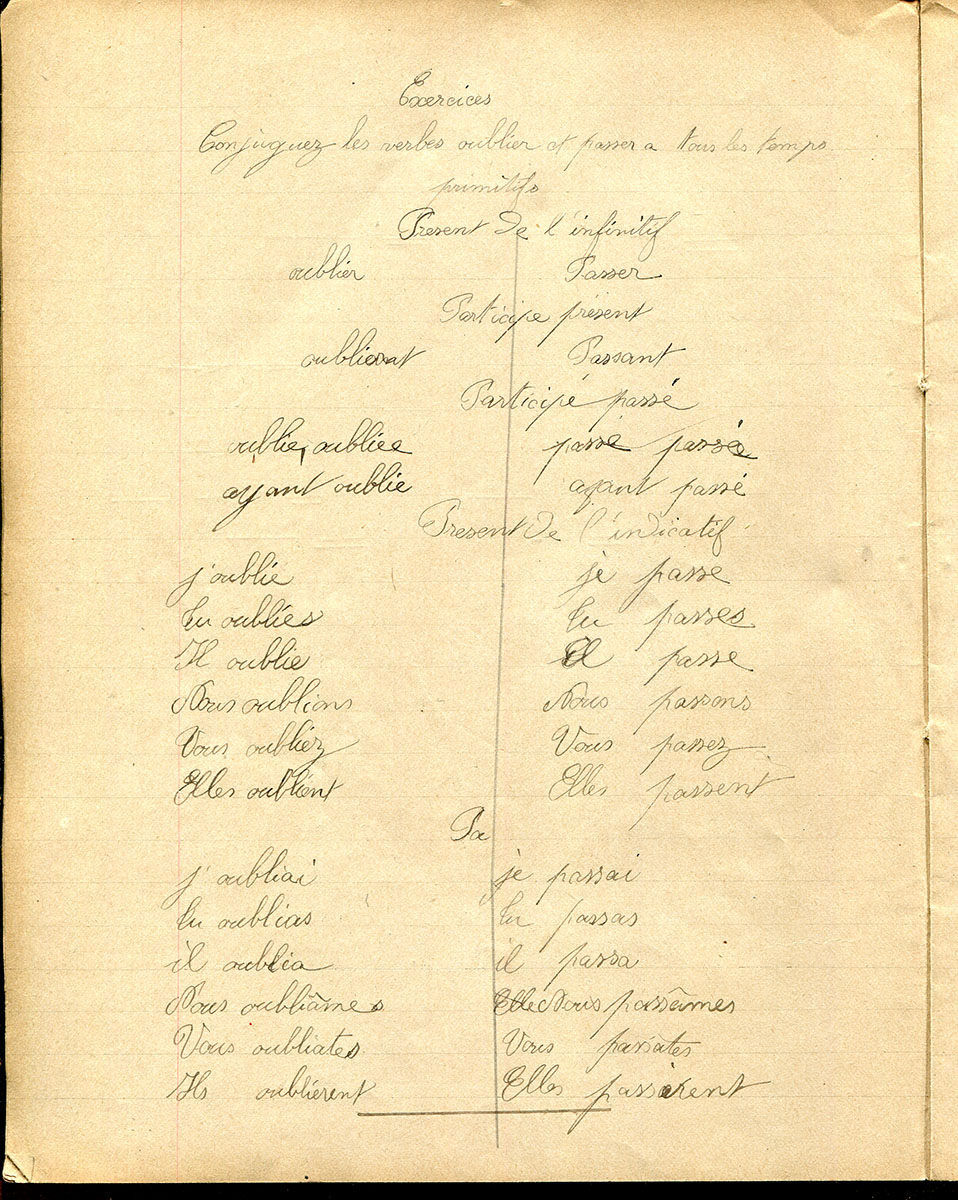 Exercices
Conjuguez les verbes oublier et passer a tous les temps
primitifs
Present de l'infinitif
oublier Passer
Participe présent
oublient Passant
Participé passé
oublie, oubliée passé passée
ayant oublie ayant passé
Present de l'indicatif
j'oublie je passe
tu oublies tu passes
Il oublie Il passe
Nous oublions Nous passons
Vous oubliez Vous passez
Elles oublient Elles passent
Pa
j'oubliai je passai
tu oublias tu passas
il oublia il passa
Nous oubliâmes Elle Nous passâmes
Vous oubliates Vous passates
Ils oublièrent Elles passèrent